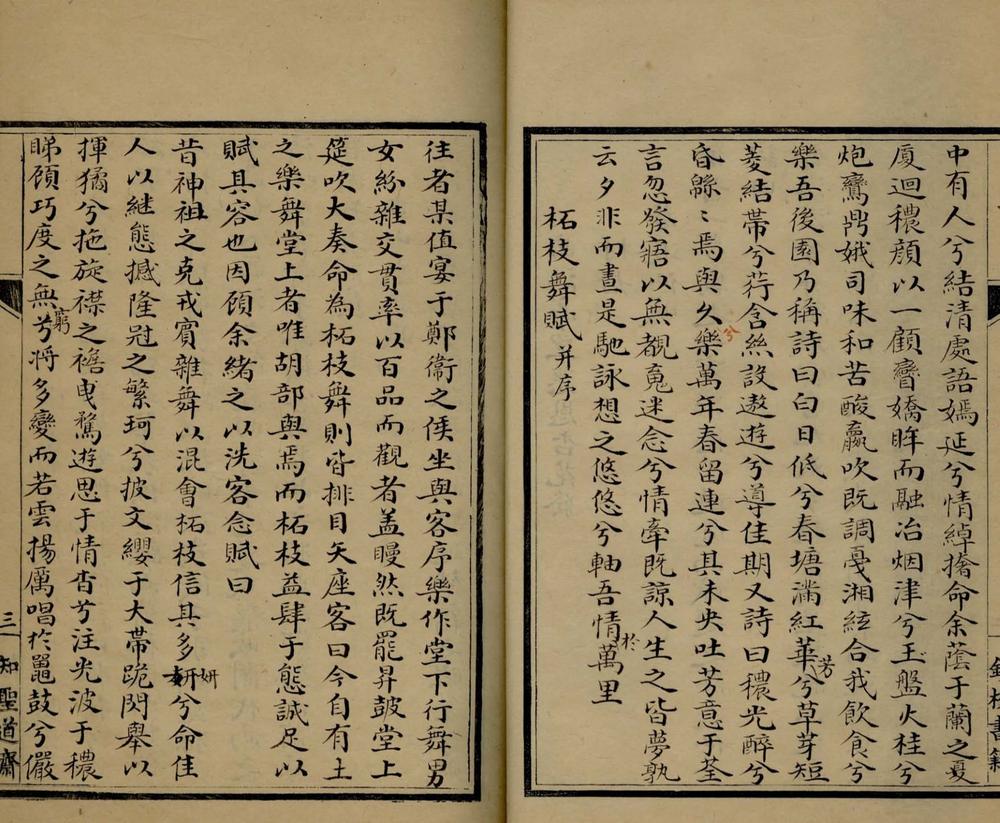 中有人兮結清處語嫣延兮情綽搶命余蔭于蘭之戞
厦迴穠顔以一顧矕嬌眸而融冶烟津兮玉盤火桂兮
炮鸞鳷娥司味和苦酸嬴吹既調戞湘絃合我飲食兮
樂吾後園乃稱詩曰白日低兮春塘滿紅華兮草芽短
芳
菱結帶兮荇含絲設遨遊兮導佳期又詩曰穠光醉兮
昏緜〻焉與久樂萬年春留連兮其未央吐芳意于荃
兮
言忽發寤以無覩䰟迷念兮情牽既諒人生之皆夢孰
云夕非而晝是馳詠想之悠悠兮軸吾情萬里
於
柘枝舞賦 并序
往者某值宴于鄭衞之侯坐與客序樂作堂下行舞男
女紛雜交貫率以百品而觀者盖瞢然既罷昇皷堂上
筵吹大奏命為柘枝舞則皆排目矢座客曰今自有土
之樂舞堂上者唯胡部與焉而柘枝益肆于態誠足以
賦其容也因顧余緒之以洗客念賦曰
昔神祖之克戎賓雜舞以混會柘枝信其多妍兮命佳
妍
人以継態撼隆冠之繁珂兮披文纓于大帶跪閃舉以
揮㺐兮拖旋襟之襜曳鶩遊思于情杳兮注光波于穠
睇顧巧度之無兮將多變而若雲揚厲唱於鼉鼓兮儼
窮
三
知聖道齋
書籍